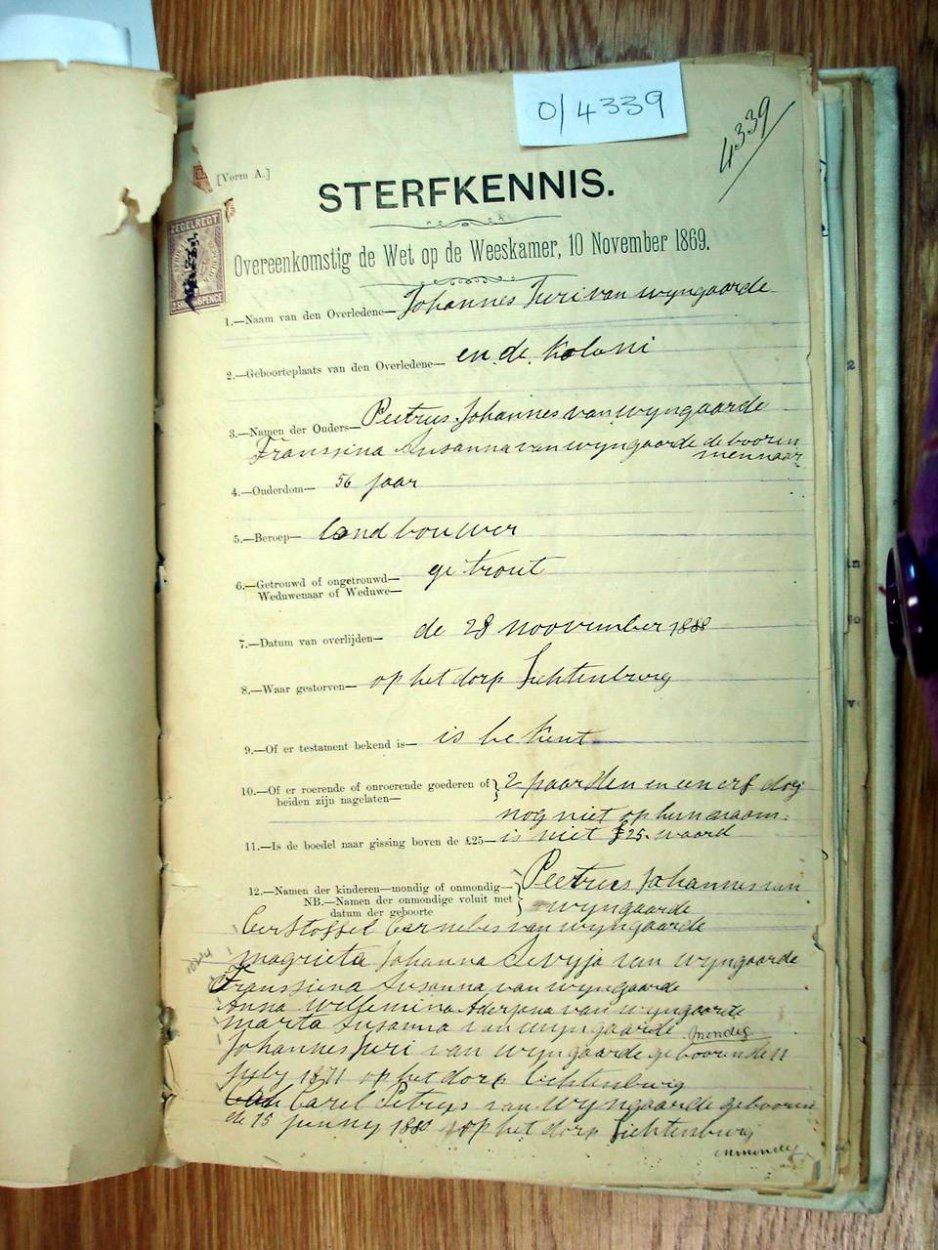 0/4339
4339
[Vorm A.]
STERFKENNIS.
ZEGELREGT
Overeenkomstig de Wet op de Weeskamer, 10 November 1869.
6PENCE
1.—Naam van den Overledene— Johannes Juri van wyngaarde
2.—Geboorteplaats van den Overledene— en de Koloni
3.—Namen der Ouders— Peetrus Johannes van wyngaarde
Franssina Susanna van wyngaarde de booren
mennaar
4.—Ouderdom— 56 jaar
5.—Beroep— land bouwer
6.—Getrouwd of ongetrouwd— ge trout
Weduwenaar of Weduwe—
7.—Datum van overlijden— de 28 noovember 1888
8.—Waar gestorven— op het dorp Lichtenburg
9.—Of er testament bekend is— is be Kent
10.—Of er roerende of onroerende goederen of 2 paarden en en erf dog
beiden zijn nagelaten— nog niet op hem naam.
11.—Is de boedel naar gissing boven de £25— is niet £25. waard
12.—Namen der kinderen—mondig of onmondig— Peetrus Johannes van
NB.—Namen der onmondige voluit met wyngaarde
datum der geboorte
Cerstoffel Cernebes van wyngaarde
magrieta Johanna Sevyja van wyngaarde
Franssiena Susanna van wyngaarde
Anna Willemina Aderjana van wyngaarde
marta Susanna van wyngaarde mondeg
Johannes Juri van wyngaarde gebooren de 11
july 1871 op het dorp lichtenburg
Carel Petrus van wyngaarde gebooren
de 15 junny 1880 op het dorp Lichtenburg
onmondeg